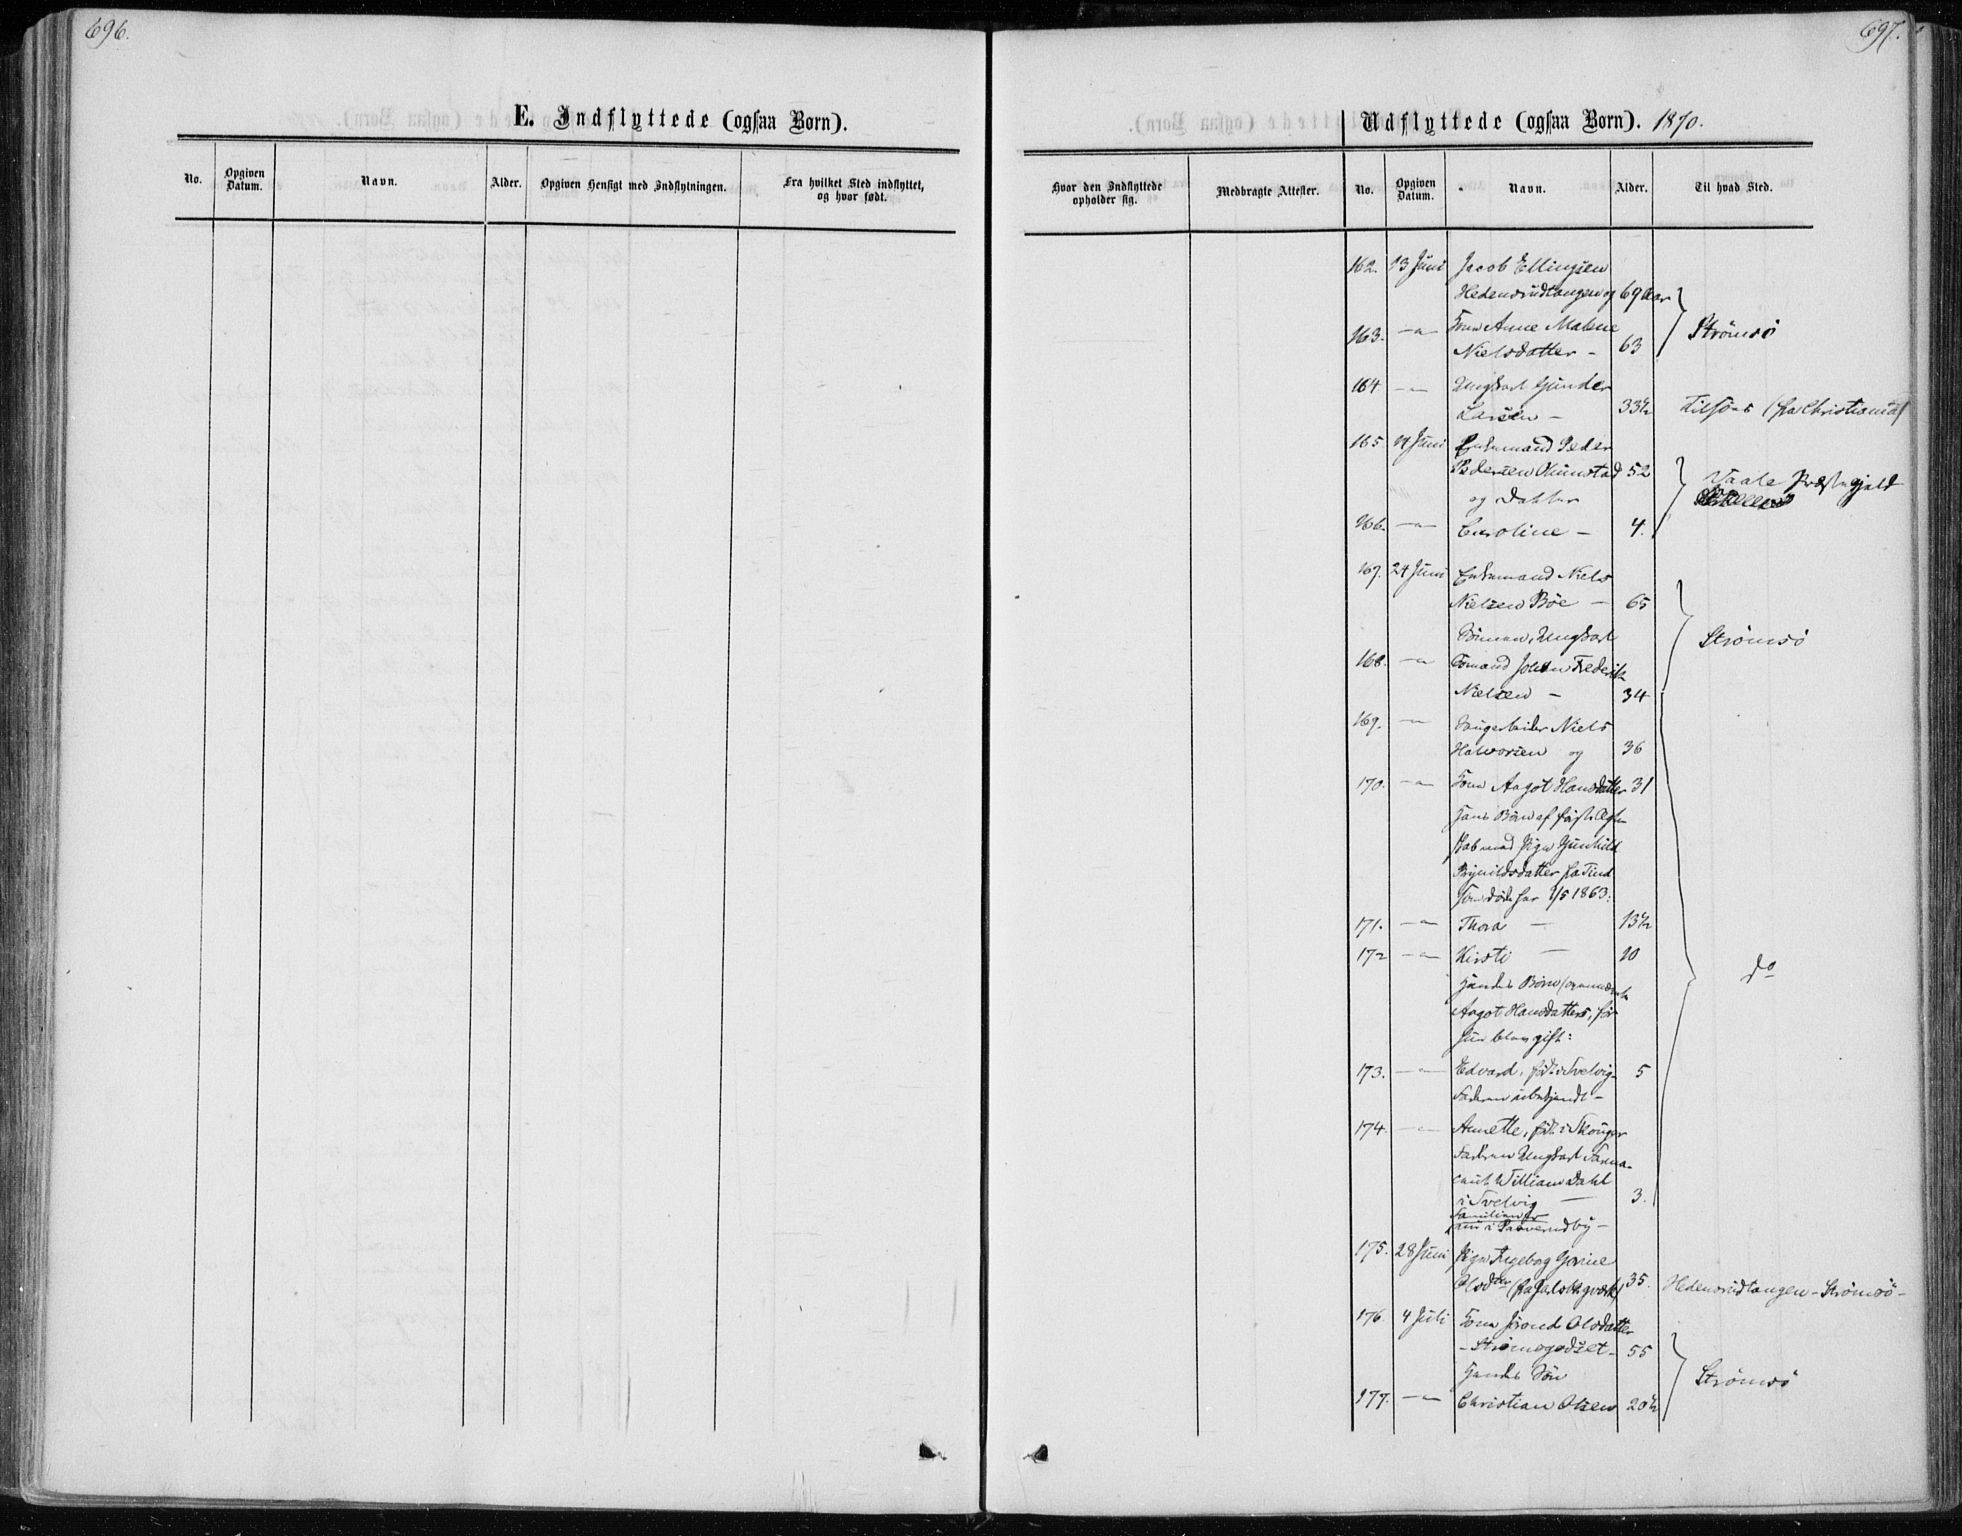 696.
E. Indflyttede (ogsaa Børn).
No.
Opgiven Datum.
Navn.
Alder.
Opgiven Hensigt med Indflytningen.
Fra hvilket Sted indflyttet, og hvor født.
697.
Udflyttede (ogsaa Børn). 1870.
Hvor den Indflyttede opholder sig.
Medbragte Attester.
No.
Opgiven Datum.
Navn.
Alder.
Til hvad Sted.
162. 13 Juni Jacob Ellingsen
Hedensrudtangen og 69 Aar
163. —"— Kone Anne Malene
Nielsdatter – 63
Strömsö
164 —"— Ungkarl Gunder
Larsen – 33½
(fra Christiania)
165 14 Juni Enkemand Peder
Pedersen 52
og Datter
Vaale Præstegjeld
166. —"— Caroline – 4.
167. 24 Juni Enkemand Niels
Nielsen Böe – 65
Sönnen, Ungkarl
Strömsö
168. —"— Johan Frederik
Nielsen – 34
169. —"— Niels
Halvorsen og 36
170. —"— Kone Aagot Hansdatter 31
Hans Börn af første Ægte-
skab med Pige Gunhild
Brynildsdatter fra Tind
som døde her 1/5 1863:
171. —"— Thora – 13½
172 —"— Kirsti – 10
do
Hendes Børn
Aagot Hansdatters, før
hun blev gift:
173. —"— Edvard, født i Svelvig – 5
Faderen ubekjendt –
174. —"— Annette, født i Skouger
Faderen Ungkarl
William Dahl
i Svelvig – 3.
Familien er
175. 28 Juni Pige Ingebog Gorine
Olsdtr (fra 35. Hedensrudtangen – Strömsö –
176. 4 Juli Kone Jorond Olsdatter
– Strömsgodset – 55
Hendes Sön
Strömsö
177. —"— Christian Olsen 20½